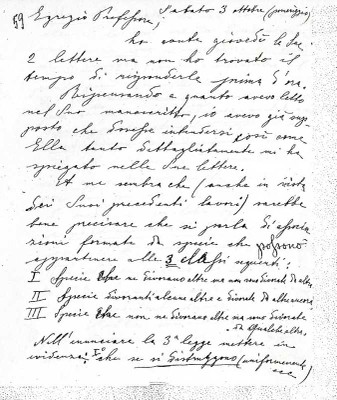 59 Egregio Professore, Sabato 3 ottobre (pomeriggio)
ho avute giovedì le Sue
2 lettere ma non ho trovato il
tempo di risponderle prima d'ora.
Ripensando a quanto avevo letto
nel Suo manoscritto, io avevo già sup
posto che dovesse intendersi così come
Ella tanto dettagliatamente mi ha
spiegato nelle Sue lettere.
A me sembra che (anche in vista
dei Suoi precedenti lavori) sarebbe
bene precisare che si parla di associa
zioni formate da specie che possono
appartenere alle 3 classi seguenti:
I Specie che ne divorano altre ma non sono divorate da altre
II Specie divoranti alcune altre e divorate da altre ancora
III Specie che non ne divorano altre ma sono divorate
da qualche altra.
Nell'enunciare la 3ª legge mettere in
evidenza: 1º che se si distruggono (uniformemente
ecc